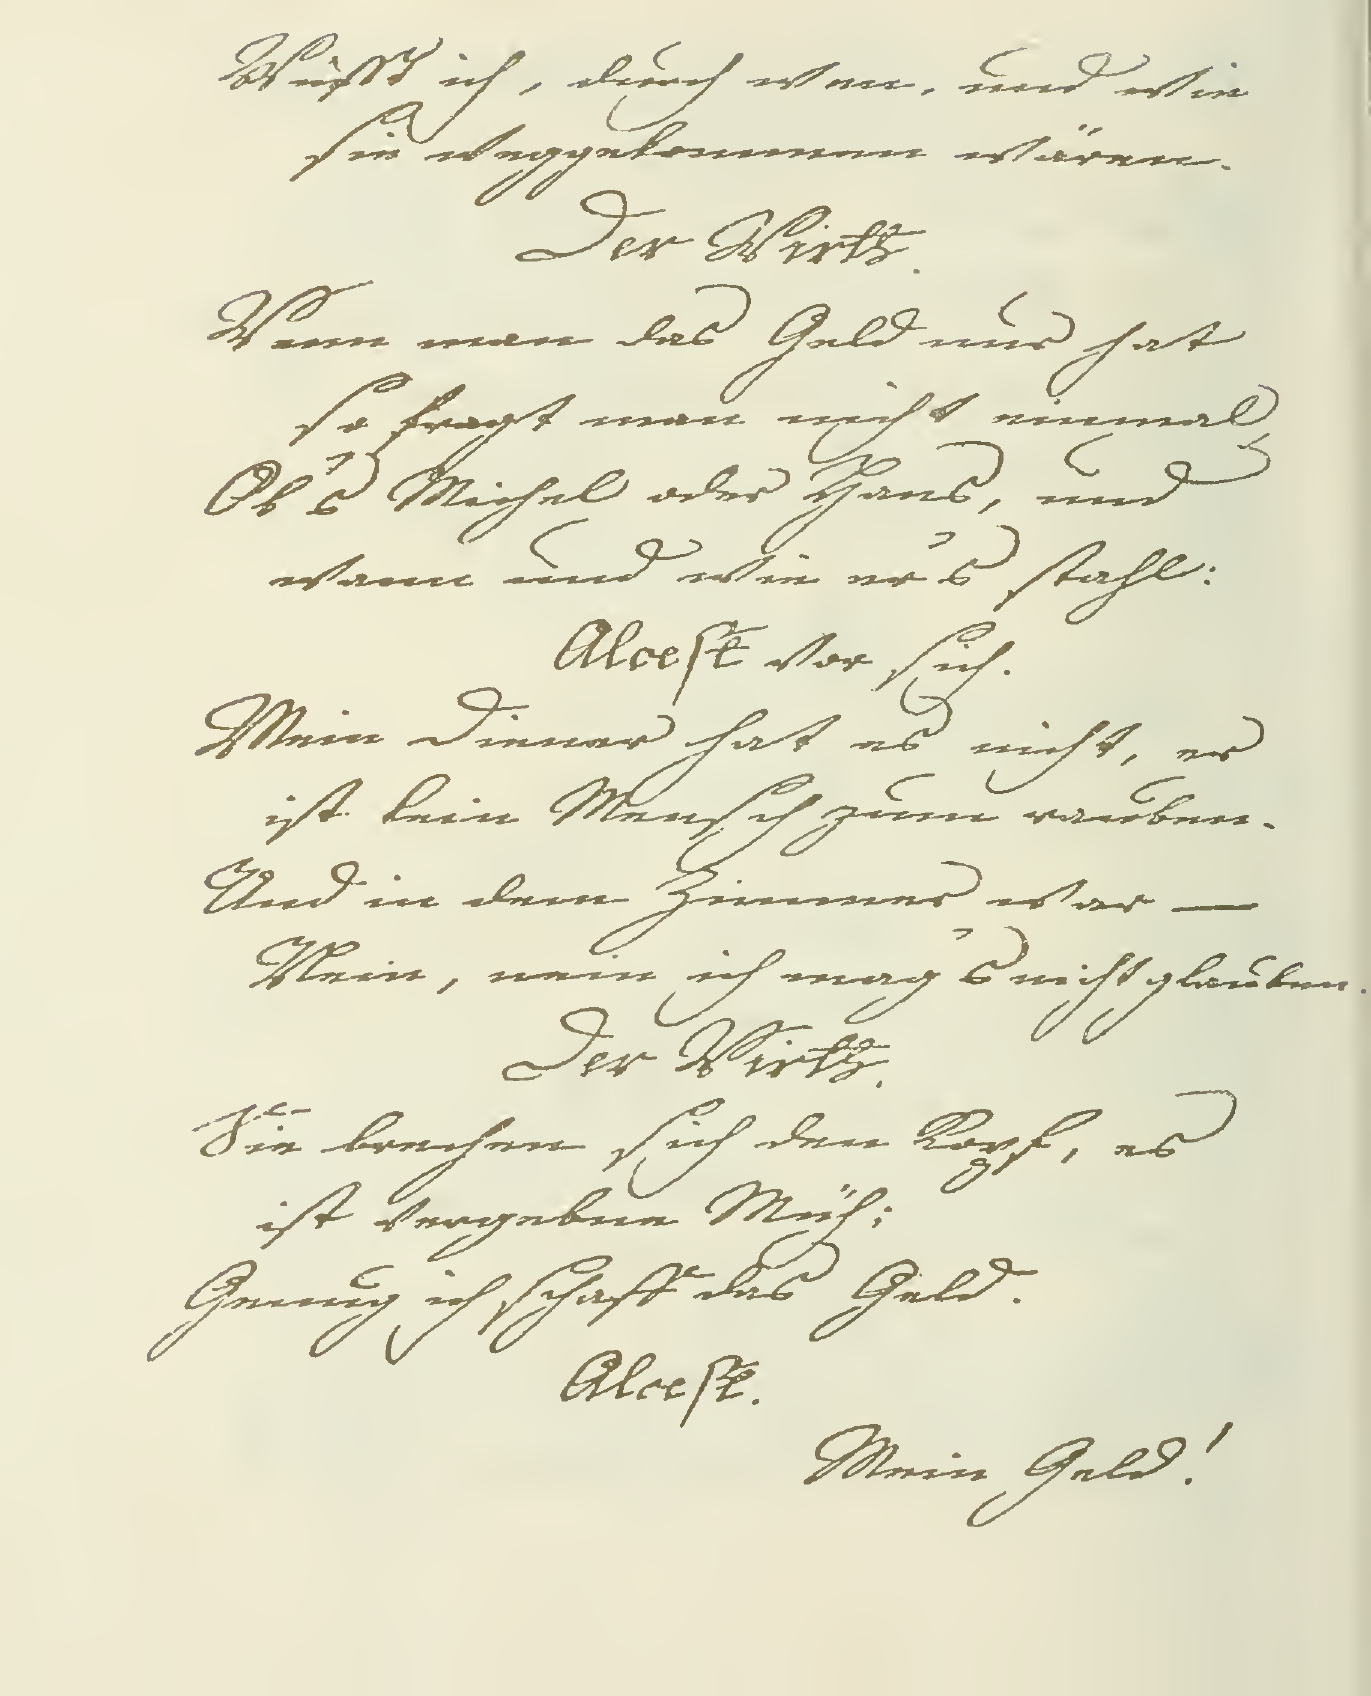 Wüsst ich, durch wen, und wie
sie weggekommen wären.
Der Wirth.
Wenn man das Geld nur hat
so fragt man nicht einmal
Ob's Michel oder Hans, und
wann und wie er's stahl:
Alceste vor sich.
Mein Diener hat es nicht, er
ist kein Mensch zum rauben.
Und in dem Zimmer war —
Nein, nein ich mag's nicht glauben.
Der Wirth.
Sie brechen sich den Kopf, es
ist vergebne Müh;
Genug ich schaff das Geld.
Alceste.
Mein Geld!